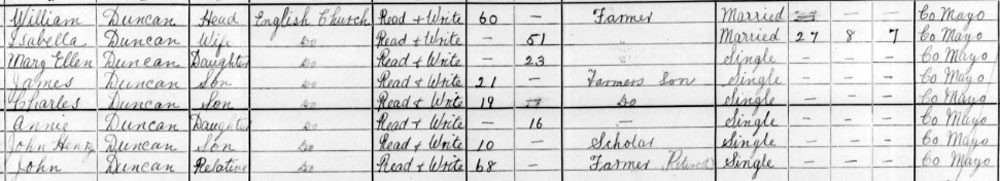 William Duncan Head English Church Read + Write 60 — Farmer Married — Co Mayo
Isabella Duncan Wife Do Read + Write — 51 Married 27 8 7 Co Mayo
Mary Ellen Duncan Daughter Do Read + Write — 23 Single — — — Co Mayo
James Duncan Son Do Read + Write 21 — Farmers Son Single — — — Co Mayo
Charles Duncan Son Do Read + Write 19 — Do Single — — — Co Mayo
Annie Duncan Daughter Do Read + Write — 16 — Single — — — Co Mayo
John Henry Duncan Son Do Read + Write 10 — Scholar Single — — — Co Mayo
John Duncan Relative Do Read + Write 68 — Farmer Retired Single — — — Co Mayo